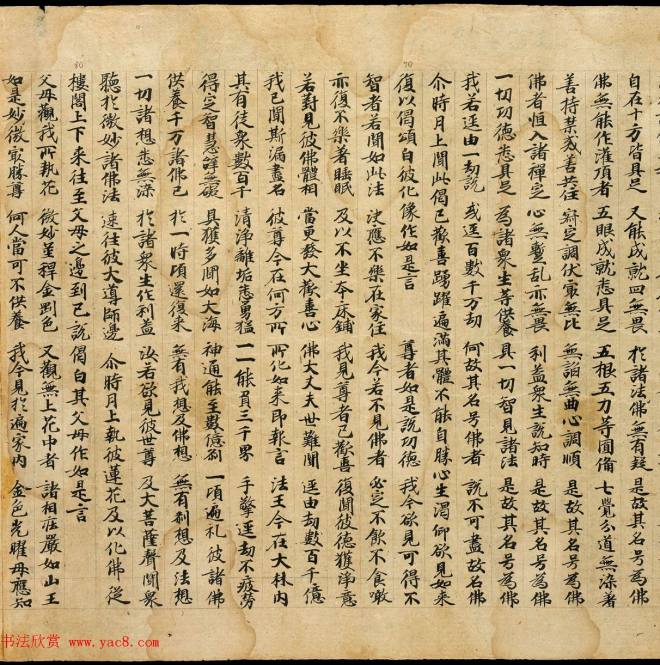 自在十方皆具足 又能成就四無畏 於諸法佛無有疑 是故其名号為佛
佛無能作灌頂者 五眼成就悉具足 五根五力等圓備 七覺分道無染著
善持禁戒善共住 辯定調伏最無比 無諂無曲心調順 是故其名号為佛
佛者恒入諸禪定 心無蹔乱亦無畏 利益衆生說知時 是故其名号為佛
一切功德悉具足 為諸衆生等供養 具一切智見諸法 是故其名号為佛
我若逕由一劫說 或逕百數千万劫 何故其名号佛者 說不可盡故名佛
尒時月上聞此偈已歡喜踴躍遍滿其體不能自勝心生渴仰欲見如來
復以偈頌白彼化像作如是言 尊者如是說功德 我今欲見可得不
智者若聞如此法 決應不樂在家住 我今若不見佛者 必定不飲不食噉
亦復不樂著睡眠 及以不坐本床鋪 我見尊者已歡喜 復聞彼德獲淨意
若對見彼佛體相 當更發大歡喜心 佛大丈夫世難聞 逕由劫數百千億
我已聞斯漏盡名 彼尊今在何方所 所化如來即報言 法王今在大林内
其有徒衆數百千 清淨離垢悉勇猛 一一能負三千界 手擎逕劫不疲勞
得定智慧辝無礙 具獲多聞如大海 神通能至數億刹 一頃遍礼彼諸佛
供養千万諸佛已 於一時頃還復來 無有我想及佛想 無有刹想及法想
一切諸想悉無染 於諸衆生作利益 汝若欲見彼世尊 及大菩薩聲聞衆
聽於微妙諸佛法 速往彼大導師邊 尒時月上執彼蓮花及以化佛從
樓閣上下來往至父母之邊到已說偈白其父母作如是言
父母觀我所執花 微妙並稈金剛色 又觀無上花中者 諸相莊嚴如山王
如是妙微最勝尊 何人當可不供養 我今見於遍家内 金色光曜母應知
70
80
书法欣赏 www.yac8.com